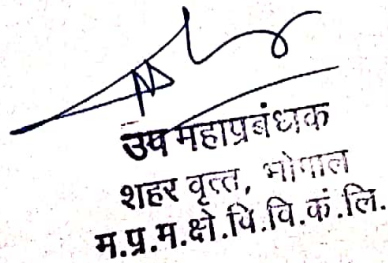 उप महाप्रबंधक
शहर वृत्त, भोपाल
म.प्र.म.क्षे.वि.वि.कं.लि.